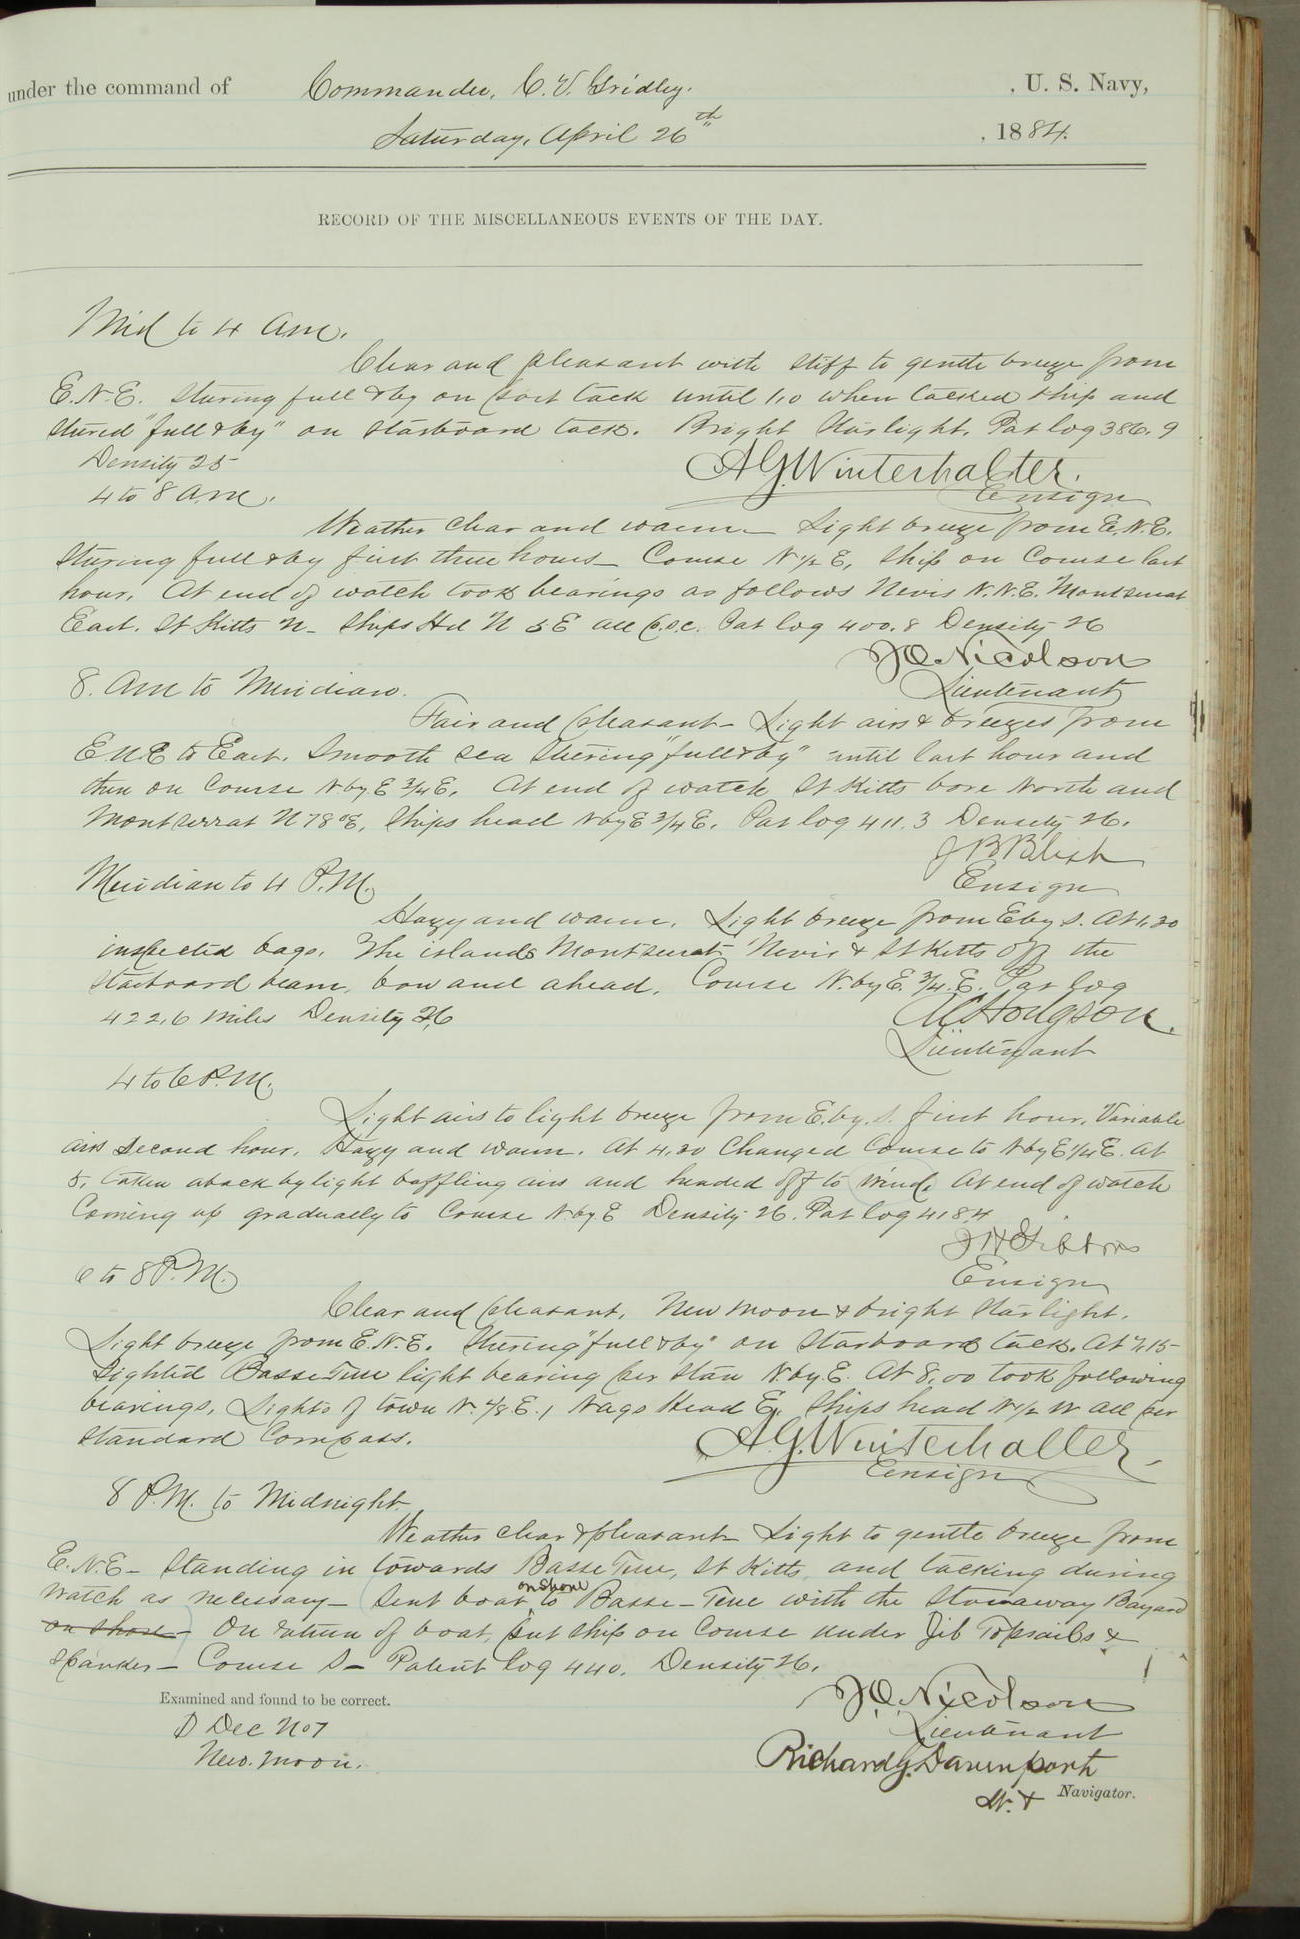 under the command of Commander, C. V. Gridley. , U. S. Navy,
Saturday, April 26th , 1884.
RECORD OF THE MISCELLANEOUS EVENTS OF THE DAY.
Mid to 4 a.m.
Clear and pleasant with stiff to gentle breeze from
E.N.E. Stering full & by on port tack until 1.10 when tacked ship and
stered "full & by" on starboard tack. Bright starlight. Pat log 386.9
Density 25
A G. Winterhalter.
Ensign
4 to 8 a.m.
Weather clear and warm Light breeze from E.N.E.
Stering full & by first three hours_ Course N ½ E, Ship on Course last
hour. At end of watch took bearings as follows Nevis N.N.E. Montserrat
East. St Kitts N_ Ships Hd N 5 E all p.s.c. Pat log 400.8 Density 26
J O Nicolson
Lieutenant
8. Am to Meridian.
Fair and pleasant_ Light airs & breezes from
E N E to East. Smooth sea Stering "full & by" until last hour and
then on Course N. by E ¾ E. At end of watch St Kitts bore North and
Montserrat N 78° E. Ships head N by E ¾ E. Pat log 411.3 Density 26.
J B Blish
Ensign
Meridian to 4 P.M.
Hazy and warm. Light breeze from E by S. At 1.30
inspected bags. The islands Montserrat Nevis & St Kitts off the
starboard beam, bow and ahead. Course N. by E. ¾. E. Pat log
422.6 miles Density 26
Hodgson
Lieutenant
4 to 6 P.M.
Light airs to light breeze from E. by. S. first hour. Variable
airs second hour. Hazy and warm. At 4.20 Changed Course to N by E ¼ E. At
5, taken aback by light baffling airs and headed off to wind. At end of watch
Coming up gradually to Course N by E Density 26. Pat log 418.4
J H Gibbons
Ensign
6 to 8 P.M.
Clear and pleasant. New moon & bright starlight.
Light breeze from E.N.E. Stering "full & by" on starboard tack. At 7.15
Sighted Basse Terre light bearing per Stan N by. E. At 8.00 took following
bearings, Lights of town N. ⅛ E., Nags Head E, Ships head N ½ W all per
Standard Compass.
A.G. Winterhalter
Ensign
8 P.M. to Midnight.
Weather clear & pleasant_ Light to gentle breeze from
E.N.E_ Standing in towards Basse Terre, St Kitts, and tacking during
watch as necessary_ Sent boat on shore to Basse-Terre with the Stowaway Bayard
on shore_ On return of boat, put ship on Course under Jib Topsails &
Spanker_ Course S_ Patent log 440. Density 26.
J. O. Nicolson
Lieutenant
Examined and found to be correct.
D Dec No 7
New. Moon.
Richard G. Davenport
Navigator.